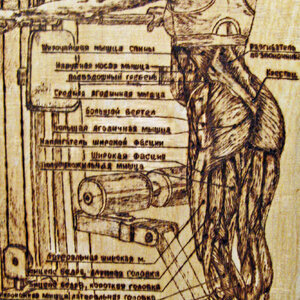 Широчайшая мышца спины
Наружная косая мышца
Подвздошный гребень
Средняя ягодичная мышца
Большой вертел
Большая ягодичная мышца
Напрягатель широкой фасции
Широкая фасция
Полусухожильная мышца
Латеральная широкая м.
Бицепс бедра, длинная головка
Бицепс бедра, короткая головка
мышца, латеральная головка
Разгибатель
позвоночника
Крестец